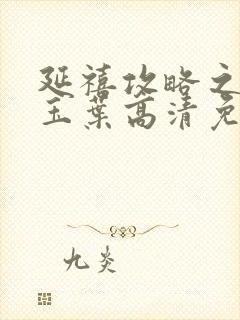 延禧攻略之
玉葉高清免
九炎